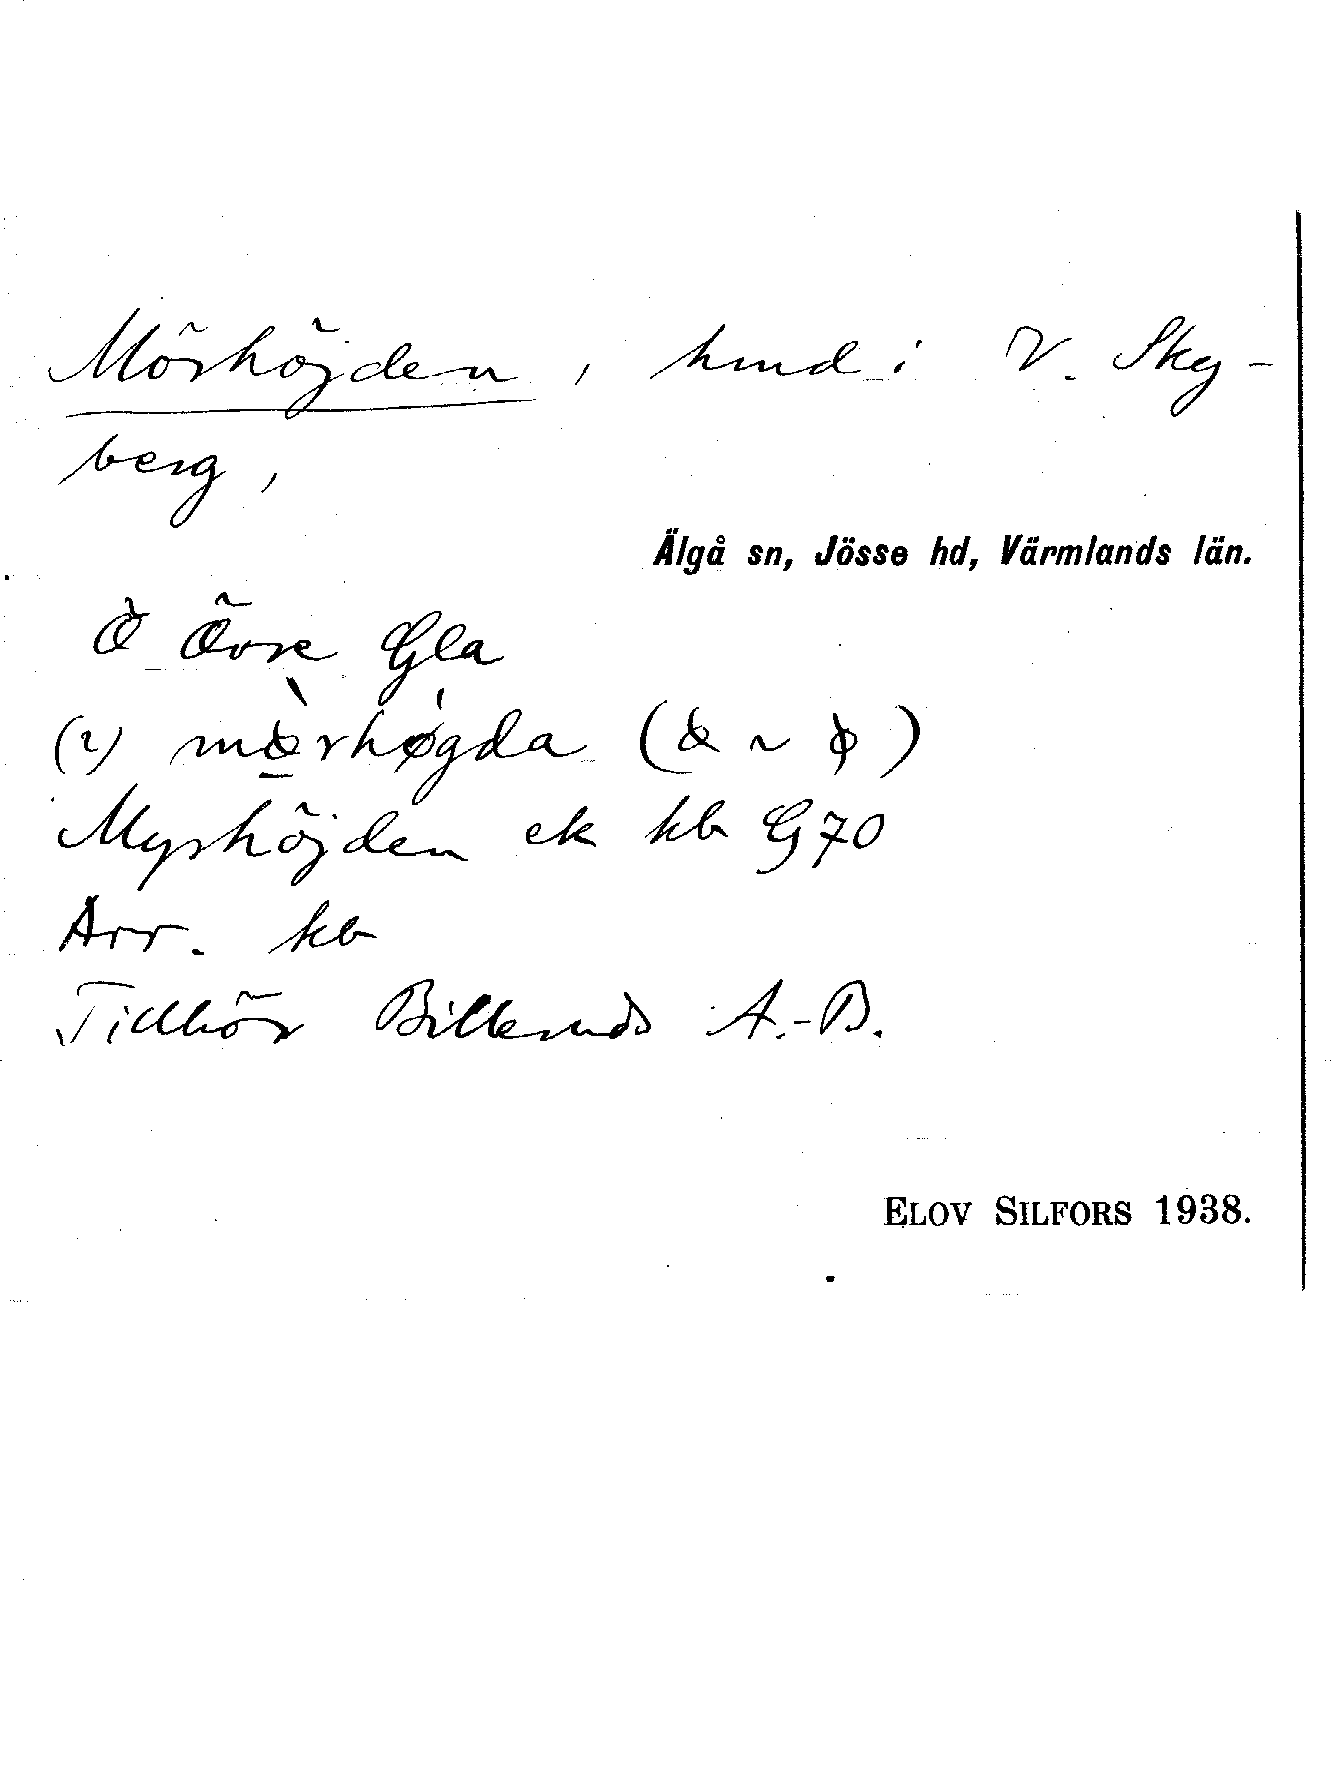 Mörhöjden, hmd i V. Sky-
berg,
Älgå sn, Jösse hd, Värmlands län.
Ö Övre Gla
(2) mrhøgda
Myrhöjden ek kb G70
Arr. kb
Tillhör Billeruds A.-B.
ELOV SILFORS 1938.